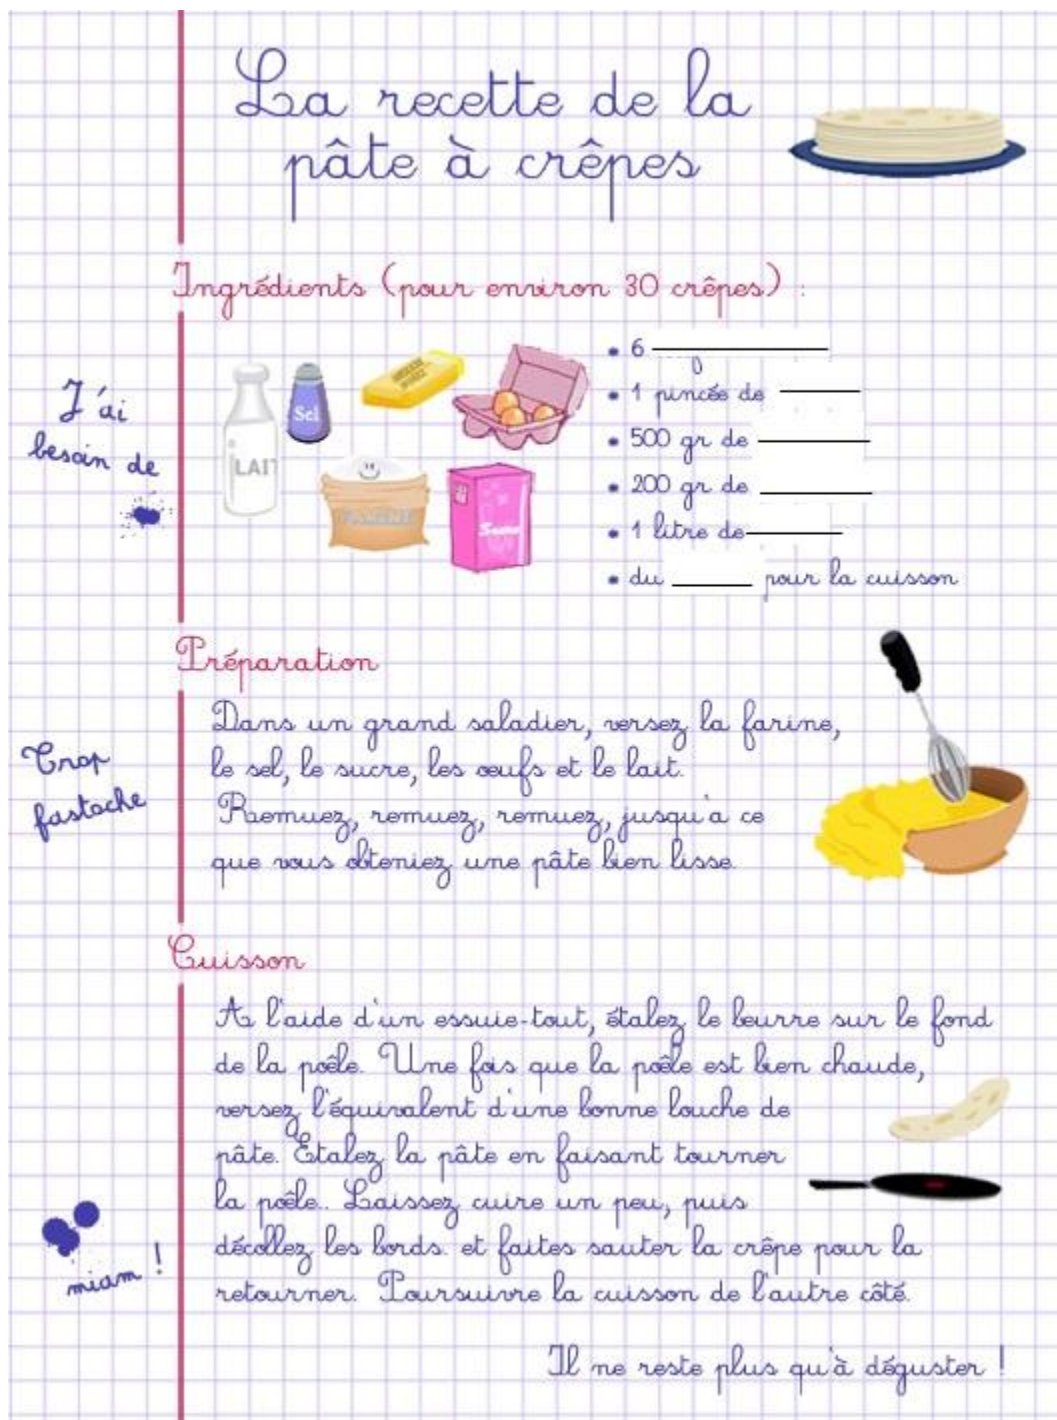 La recette de la
pâte à crêpes
Ingrédients (pour environ 30 crêpes) :
J'ai
besoin de
LAIT
Sel
Sucre
• 6
• 1 pincée de
• 500 gr de
• 200 gr de
• 1 litre de
• du pour la cuisson
Préparation
Trop
fastoche
Dans un grand saladier, versez la farine,
le sel, le sucre, les oeufs et le lait.
Remuez, remuez, remuez, jusqu'a ce
que vous obteniez une pâte bien lisse.
Cuisson
A l'aide d'un essuie-tout, étalez le beurre sur le fond
de la poêle. Une fois que la poêle est bien chaude,
versez l'équivalent d'une bonne louche de
pâte. Etalez la pâte en faisant tourner
la poêle.. Laissez cuire un peu, puis
décollez les bords. et faites sauter la crêpe pour la
retourner. Poursuivre la cuisson de l'autre côté.
miam !
Il ne reste plus qu'à déguster !